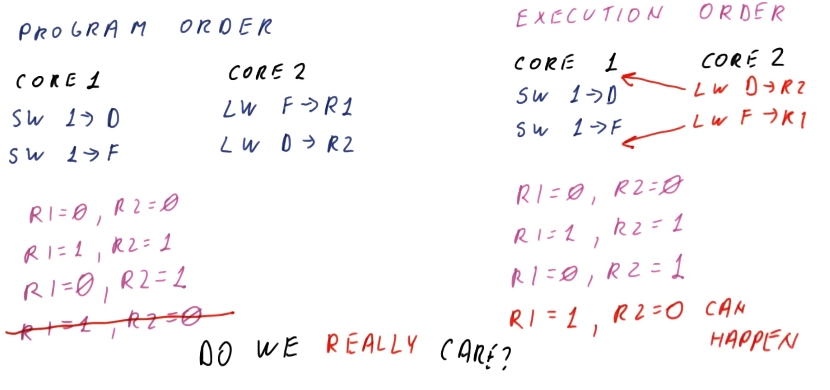 PROGRAM ORDER
CORE 1
CORE 2
SW 1→D
LW F→R1
SW 1→F
LW D→R2
R1=0, R2=0
R1=1, R2=1
R1=0, R2=1
R1=1, R2=0
EXECUTION ORDER
CORE 1
CORE 2
SW 1→D
LW D→R2
SW 1→F
LW F→R1
R1=0, R2=0
R1=1, R2=1
R1=0, R2=1
R1=1, R2=0 CAN
HAPPEN
DO WE REALLY CARE?